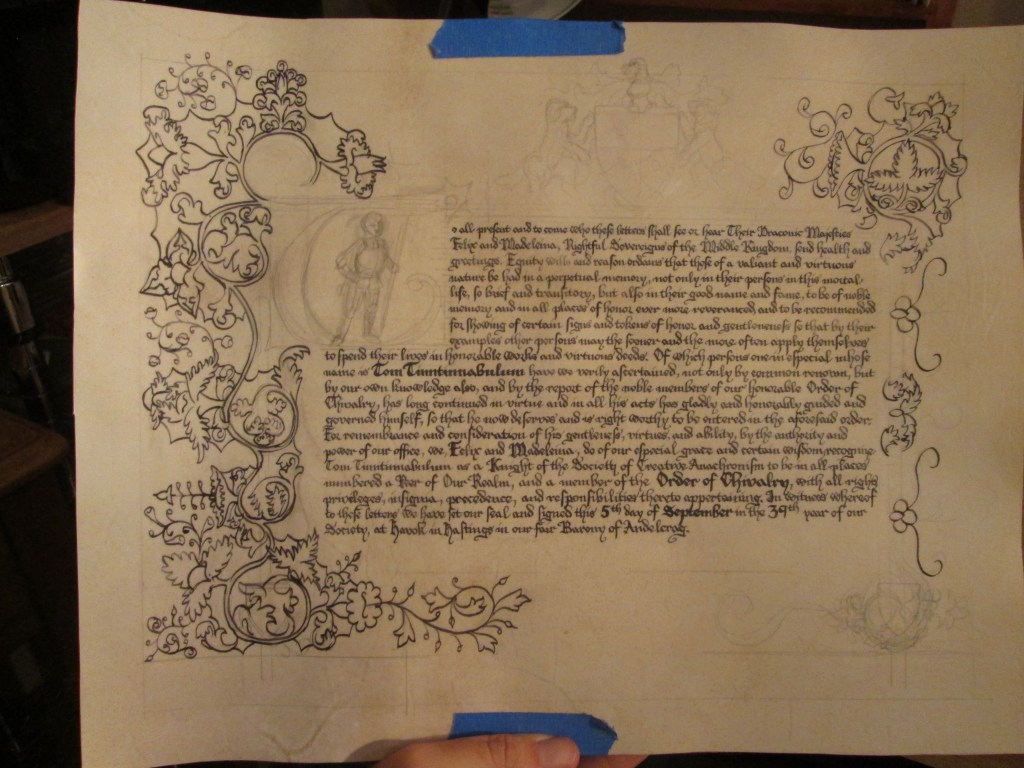 all present and to come who these letters shall see or hear Their Draconic Majesties
Felix and Madeleina, Rightful Sovereigns of the Middle Kingdom, send health and
greetings. Equity wills and reason ordeans that those of a valiant and virtuous
nature be had in a perpetual memory, not only in their persons in this mortal
life, so brief and transitory, but also in their good name and fame, to be of noble
memory and in all places of honor ever more reveranced, and to be recommended
for showing of certain signs and tokens of honor and gentleness so that by their
examples other persons may the sooner and the more often apply themselves
to spend their lives in honorable works and virtuous deeds. Of which persons one in especial whose
name is Tom Tinntinnabulum have we verily ascertained, not only by common renown, but
by our own knowledge also, and by the report of the noble members of our honorable Order of
Chivalry, has long continued in virtue and in all his acts has gladly and honorably guided and
governed himself, so that he now deserves and is right worthy to be entered in the aforesaid order.
For remembrance and consideration of his gentleness, virtues, and ability, by the authority and
power of our office, we, Felix and Madeleina, do of our especial grace and certain wisdom, recognize
Tom Tinntinnabulum as a Knight of the Society of Creative Anachronism to be in all places
numbered a Peer of Our Realm, and a member of the Order of Chivalry, with all rights
priviledges, insignia, precedence, and responsibilities thereto appertaining. In witness whereof
to these letters We have set our seal and signed this 5th day of September in the 39th year of our
Society, at Havok in Hastings in our fair Barony of Andelcrag.